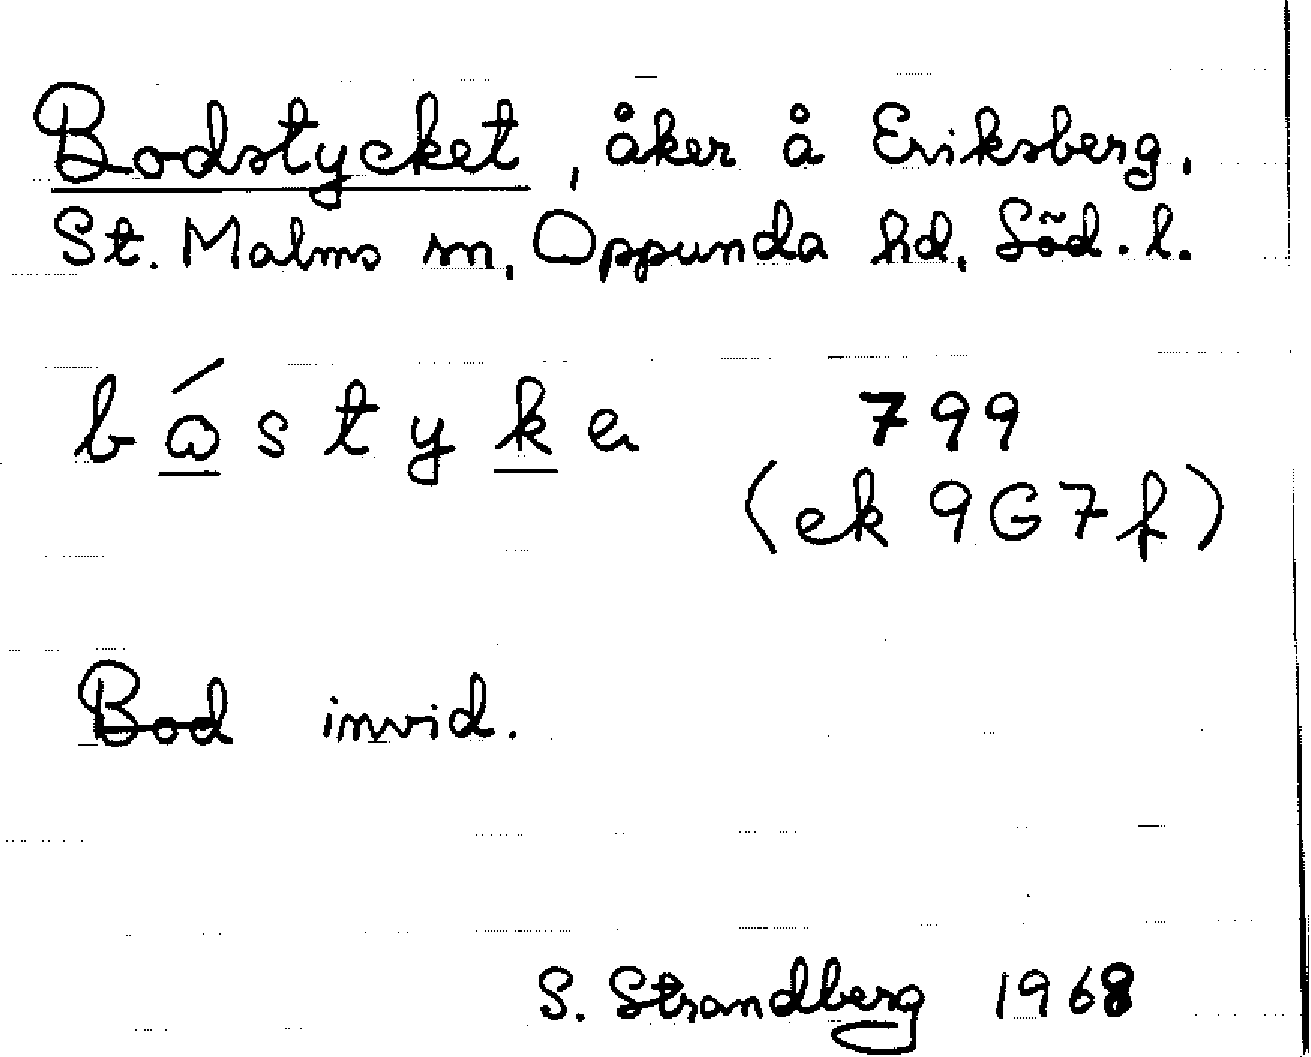 Bodstycket, åker å Eriksberg,
St. Malms sn, Oppunda hd, Söd. l.
bóstyke 799
(ek 9G7f)
Bod invid.
S. Strandberg 1968